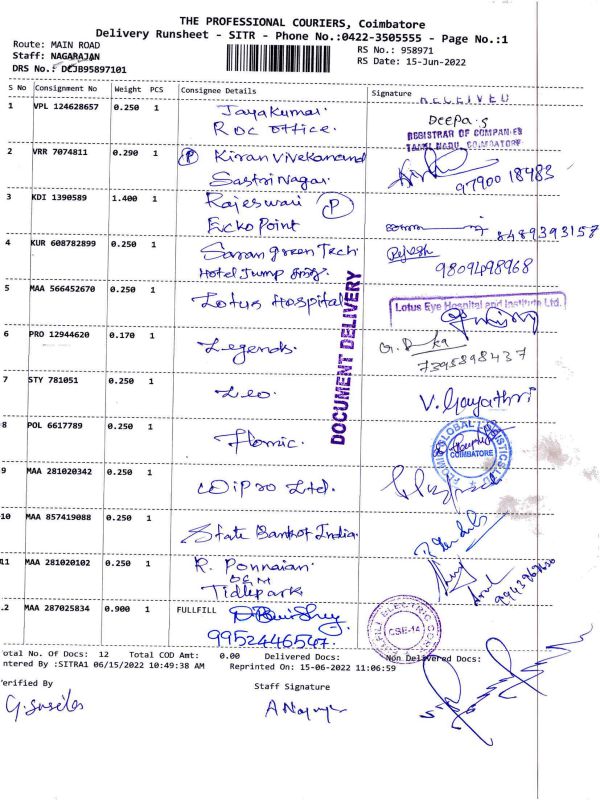 THE PROFESSIONAL COURIERS, Coimbatore
Delivery Runsheet - SITR - Phone No.:0422-3505555 - Page No.:1
Route: MAIN ROAD
Staff: NAGARAJAN
DRS No.: DCJB95897101
RS No.: 958971
RS Date: 15-Jun-2022
S No Consignment No Weight PCS Consignee Details Signature
1 VPL 124628657 0.250 1 Jayakumar RECEIVED
ROC office. Deepa.S
REGISTRAR OF COMPANIES
TAMIL NADU, COIMBATORE
2 VRR 7074811 0.290 1 P Kiran Vivekanand
Sastri Nagar 97900 18483
3 KDI 1390589 1.400 1 Rajeswari P
Ecko Point 8489393157
4 KUR 608782899 0.250 1 Saran green Tech Rejesh
Hotel Jump 9809498968
5 MAA 566452670 0.250 1 Lotus Hospital Lotus Eye Hospital and Institute Ltd.
6 PRO 12944620 0.170 1 Legends. G.D ka
7395898437
7 STY 781051 0.250 1 Leo. V. Gayathri
8 POL 6617789 0.250 1 Flomic. FLOMIC GLOBAL LOGISTICS LTD
COIMBATORE
9 MAA 281020342 0.250 1 Wipro Ltd.
10 MAA 857419088 0.250 1 State Bank of India.
11 MAA 281020102 0.250 1 R. Ponnaian
Tidlepark
.2 MAA 287025834 0.900 1 FULLFILL
9952446547
CSE-14
DOCUMENT DELIVERY
otal No. Of Docs: 12 Total COD Amt: 0.00 Delivered Docs: Non Delivered Docs:
ntered By :SITRA1 06/15/2022 10:49:38 AM Reprinted On: 15-06-2022 11:06:59
erified By
Staff Signature
G. Suseela